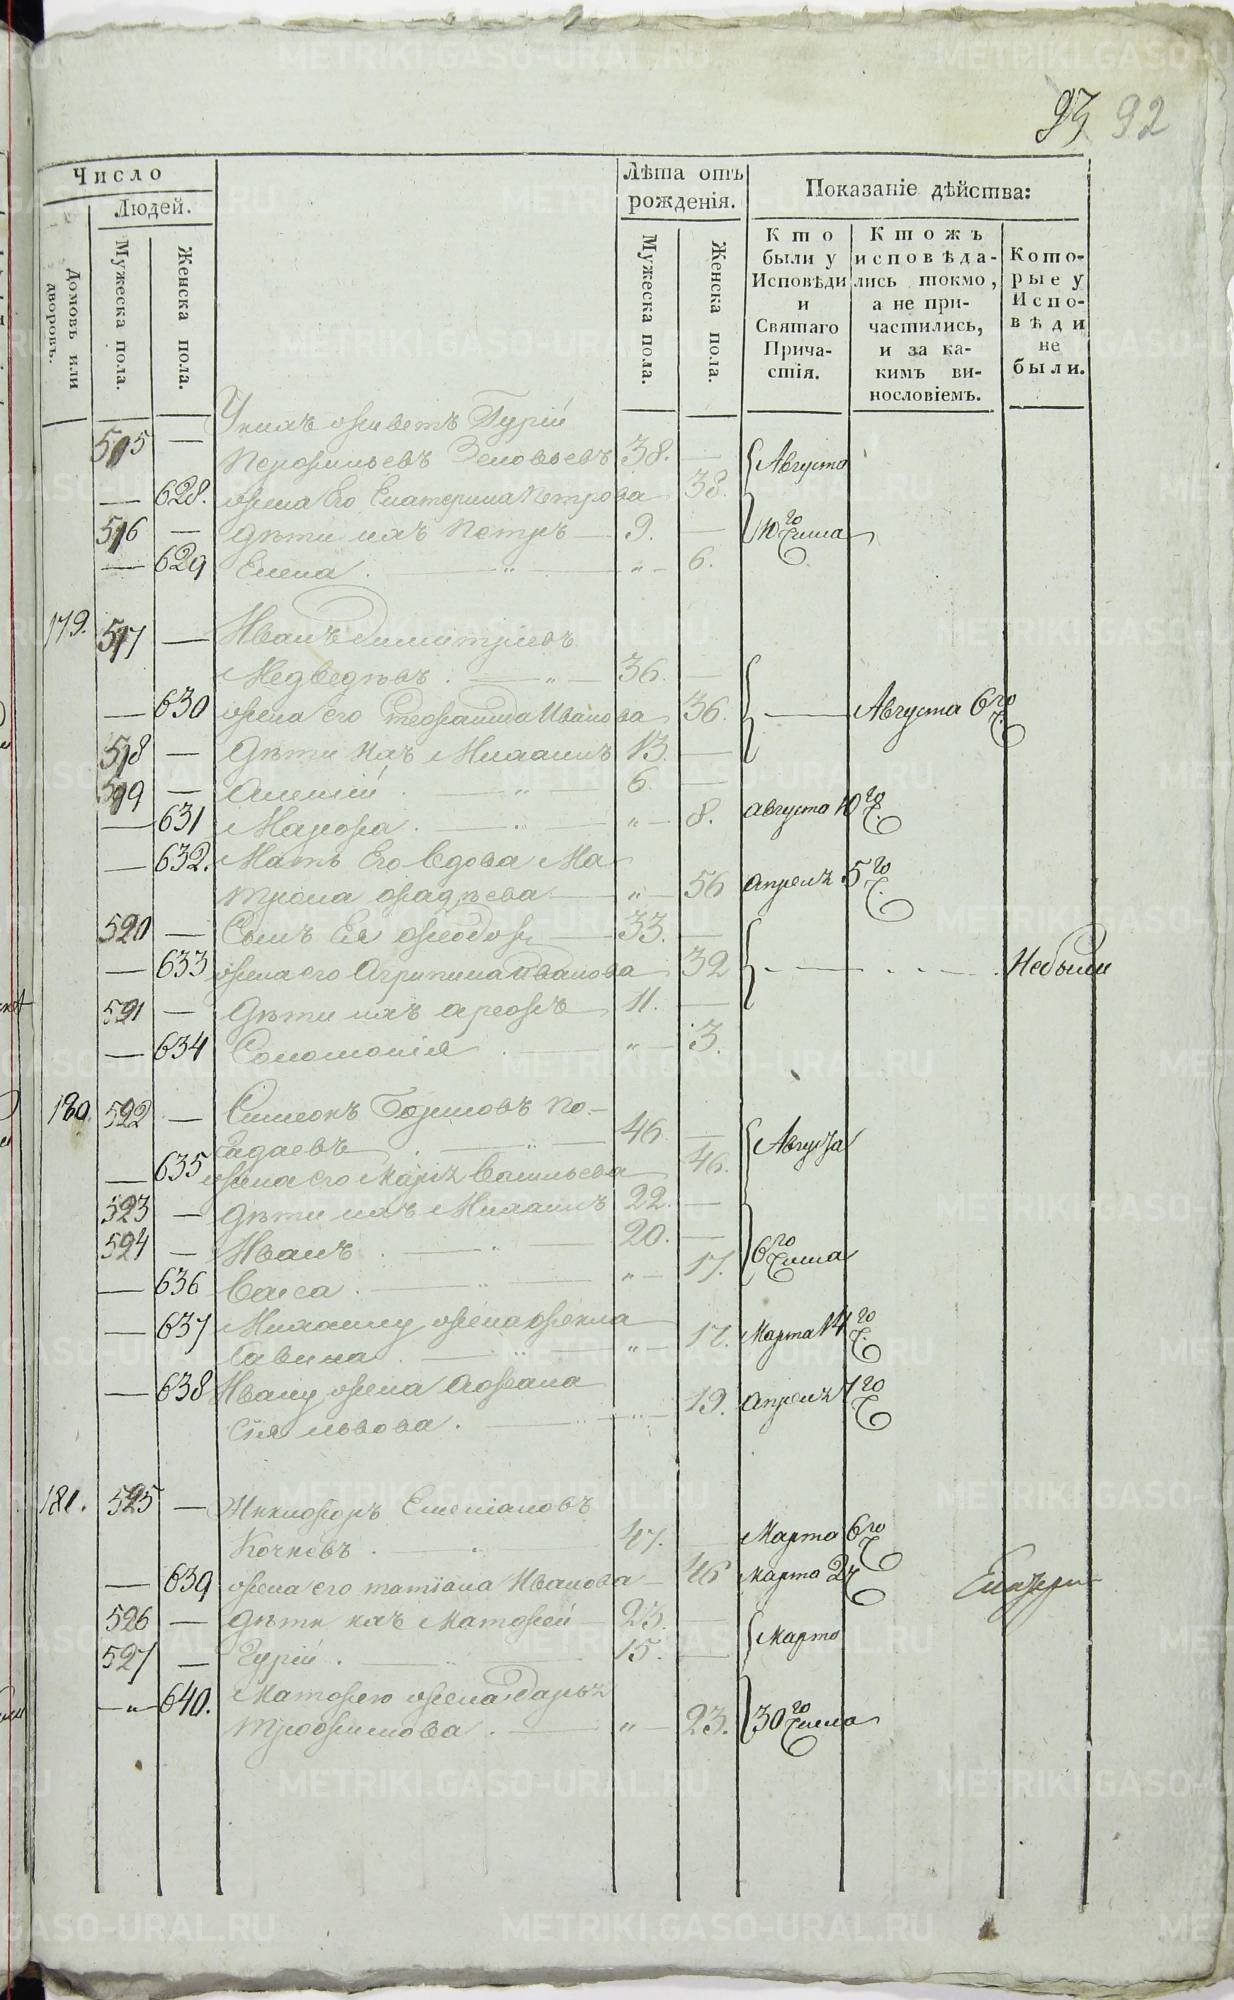 93 92
Число
Людей.
Домовъ или дворовъ.
Мужеска пола.
Женска пола.
Лѣта отъ рожденія.
Мужеска пола.
Женска пола.
Показаніе дѣйства:
Кто были у Исповѣди и Святаго Причастія.
Ктожъ исповѣдались токмо, а не причастились, и за какимъ винословіемъ.
Которые у Исповѣди не были.
У нихъ живетъ Гурій
515 — 38. — Августа
— 628. жена Его Екатерина Петрова 38.
516 — дѣти ихъ Петръ — 9. — 10го числа
— 629 Елена . — „ — „ — 6.
179. 517 — Иванъ Димитріевъ
Медведевъ . — „ — 36. —
— 630 жена его Ивановa 36. — Августа 6го ч.
518 — дѣти ихъ Михаилъ 13. —
519 — Алексій . — „ — 6. —
— 631 Марфа . — „ — „ — 8. августа 10го ч.
— 632. Мать Его вдова Ма-
трона фадѣева — „ — 56 апреля 5го ч.
520 — Сынъ Ея феодоръ — 33. —
— 633 жена его Агрипина Иванова 32 — Небыли
521 — дѣти ихъ — 11. —
— 634 Соломонія . — „ — 3.
180. 522 — Симеонъ По-
гадаевъ . — „ — 46. — Августа
— 635 жена его Марія Васильева 46.
523 — дѣти ихъ Михаилъ 22. —
524 — Иванъ . — „ — 20. — 6го числа
— 636 Васса . — „ — „ — 17.
— 637 Михаилу жена фекла
Савина . — „ — „ — 17. Марта 14го ч.
— 638 Ивану жена Афана-
сія львова . — „ — 19. апреля 7го ч.
181. 525 — Никифоръ Емеліановъ
Кочневъ . — „ — 47. — Марта 6го ч.
— 639 жена его татіана Иванова — 46 марта 27 ч.
526 — дѣти ихъ Матфей 23. — Марта
527 — Гурій . — „ — 15. —
— „ — 640. Матфею жена Дарья
Трофимова . — „ — 23. 30го числа
METRIKI.GASO-URAL.RU